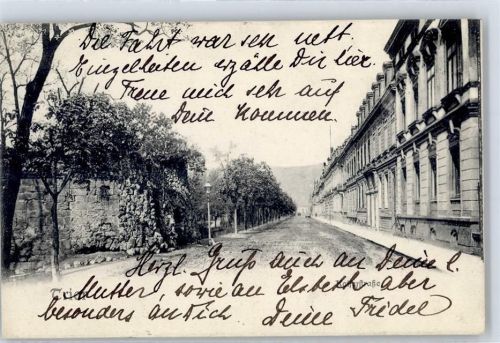 Die Fahrt war sehr nett.
Einzelheiten erzälle Dir hier.
Freue mich sehr auf
Dein Kommen.
Herzl. Gruß auch an Deine l.
Mutter, sowie an Elsbeth aber
besonders an Dich Deine Friedel
Trier